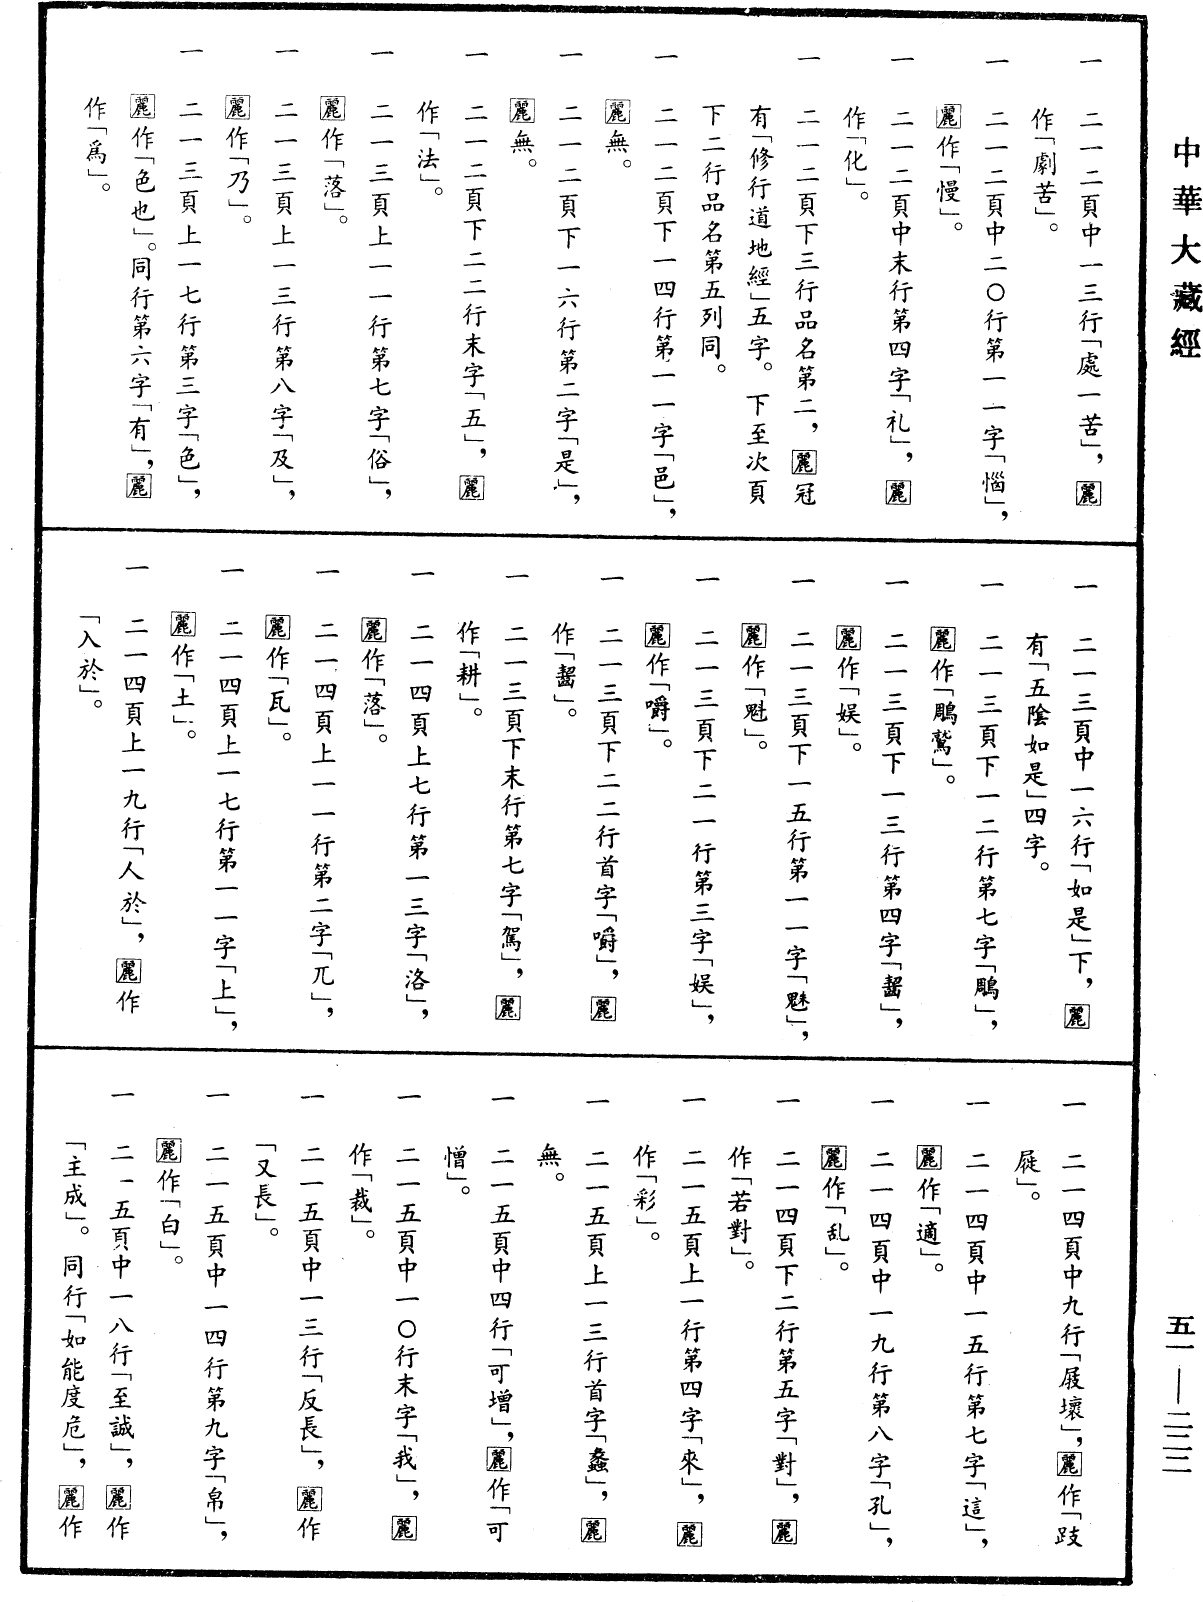 中華大藏經
一　二一二頁中一三行「處一苦」，麗
作「劇苦」。
一　二一二頁中二〇行第一一字「惱」，
麗作「慢」。
一　二一二頁中末行第四字「礼」，麗
作「化」。
一　二一二頁下三行品名第二，麗冠
有「修行道地經」五字。下至次頁
下二行品名第五列同。
一　二一二頁下一四行第一一字「邑」，
麗無。
一　二一二頁下一六行第二字「是」，
麗無。
一　二一二頁下二二行末字「五」，麗
作「法」。
一　二一三頁上一一行第七字「俗」，
麗作「落」。
一　二一三頁上一三行第八字「及」，
麗作「乃」。
一　二一三頁上一七行第三字「色」，
麗作「色也」。同行第六字「有」，麗
作「爲」。
一　二一三頁中一六行「如是」下，麗
有「五陰如是」四字。
一　二一三頁下一二行第七字「鵰」，
麗作「鵰鷲」。
一　二一三頁下一三行第四字「齧」，
麗作「娛」。
一　二一三頁下一五行第一一字「魅」，
麗作「魁」。
一　二一三頁下二一行第三字「娛」，
麗作「嚼」。
一　二一三頁下二二行首字「嚼」，麗
作「齧」。
一　二一三頁下末行第七字「駕」，麗
作「耕」。
一　二一四頁上七行第一三字「洛」，
麗作「落」。
一　二一四頁上一一行第二字「兀」，
麗作「瓦」。
一　二一四頁上一七行第一一字「上」，
麗作「土」。
一　二一四頁上一九行「人於」，麗作
「入於」。
一　二一四頁中九行「屐壞」，麗作「跂
屣」。
一　二一四頁中一五行第七字「這」，
麗作「適」。
一　二一四頁中一九行第八字「孔」，
麗作「乱」。
一　二一四頁下二行第五字「對」，麗
作「若對」。
一　二一五頁上一行第四字「來」，麗
作「彩」。
一　二一五頁上一三行首字「蠡」，麗
無。
一　二一五頁中四行「可增」，麗作「可
憎」。
一　二一五頁中一〇行末字「我」，麗
作「裁」。
一　二一五頁中一三行「反長」，麗作
「又長」。
一　二一五頁中一四行第九字「帛」，
麗作「白」。
一　二一五頁中一八行「至誠」，麗作
「主成」。同行「如能度危」，麗作
五一—二二二